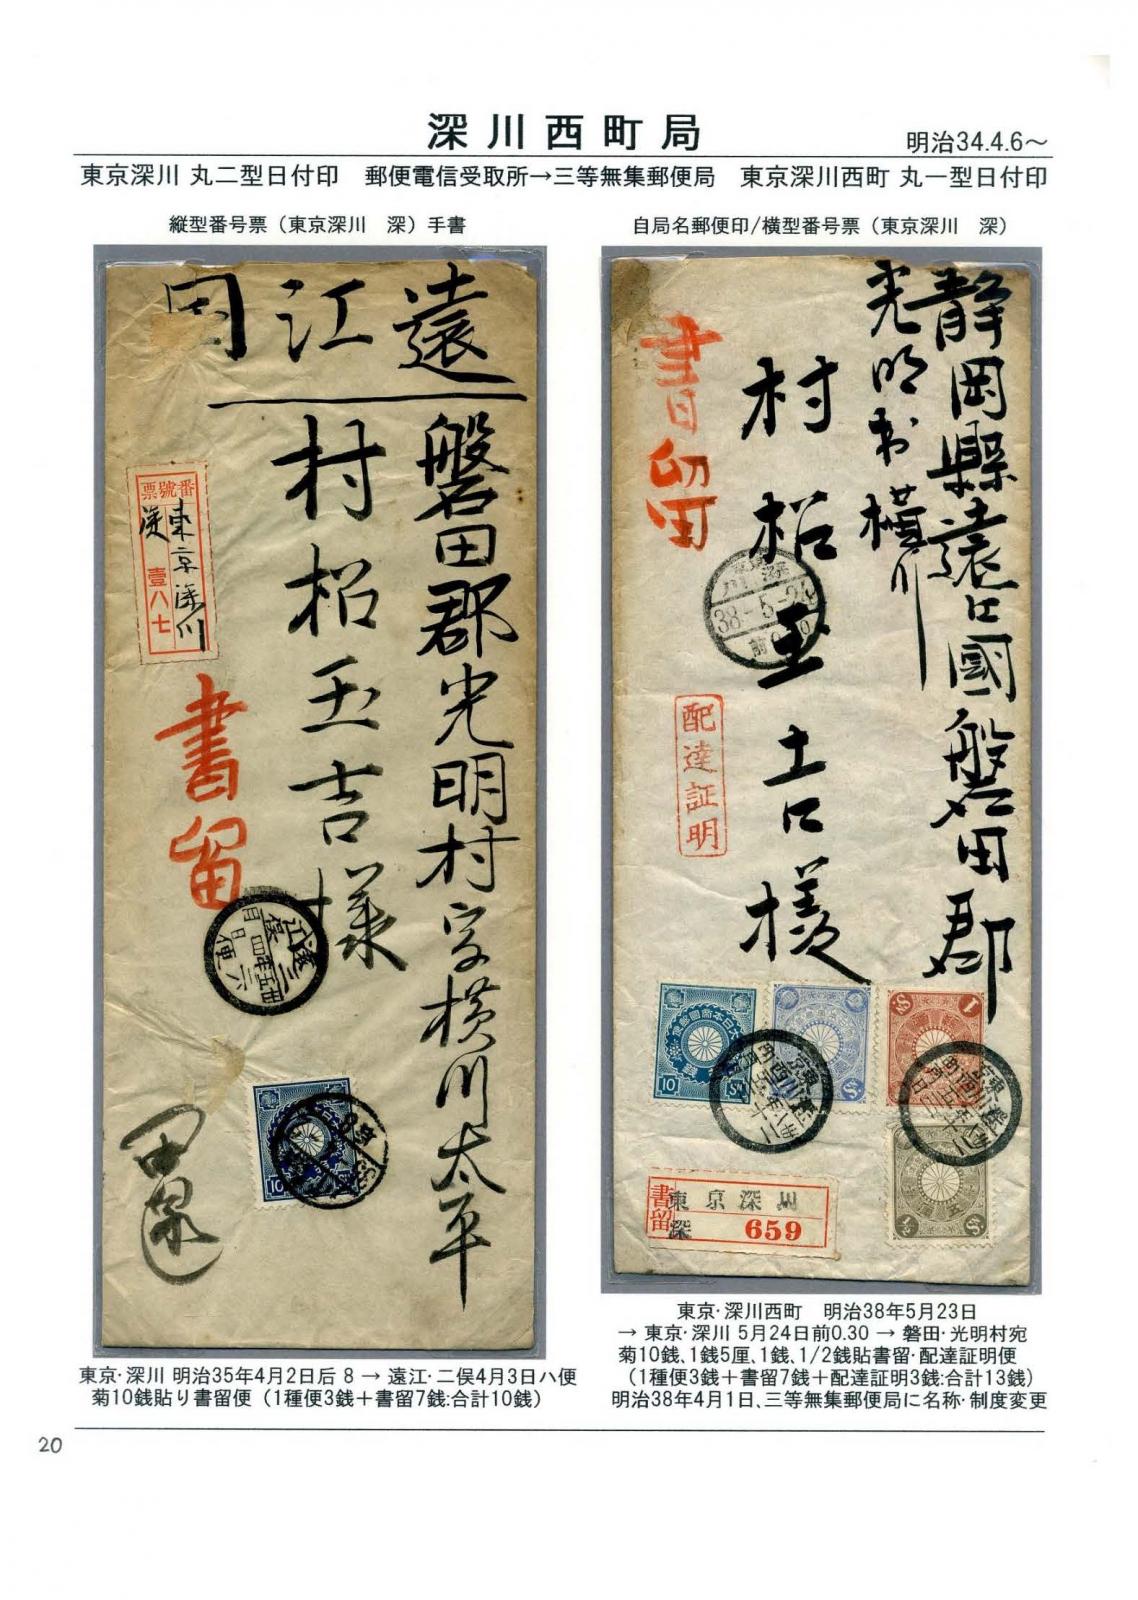 深川西町局
明治34.4.6～
東京深川 丸二型日付印　郵便電信受取所→三等無集郵便局　東京深川西町 丸一型日付印
縦型番号票（東京深川　深）手書
遠江国
磐田郡光明村字横川太平
村松玉吉様
番號票
東京深川
深
壹八七
書留
10
東京・深川 明治35年4月2日后 8 → 遠江・二俣4月3日ハ便
菊10銭貼り書留便（1種便3銭＋書留7銭:合計10銭）
自局名郵便印/横型番号票（東京深川　深）
静岡縣遠江國磐田郡
光明村横川
村松玉吉様
書留
38-5-24
配達証明
10
1
書留
東京深川
深
659
東京・深川西町　明治38年5月23日
→ 東京・深川 5月24日前0.30 → 磐田・光明村宛
菊10銭、1銭5厘、1銭、1/2銭貼書留・配達証明便
（1種便3銭＋書留7銭＋配達証明3銭:合計13銭）
明治38年4月1日、三等無集郵便局に名称・制度変更
20